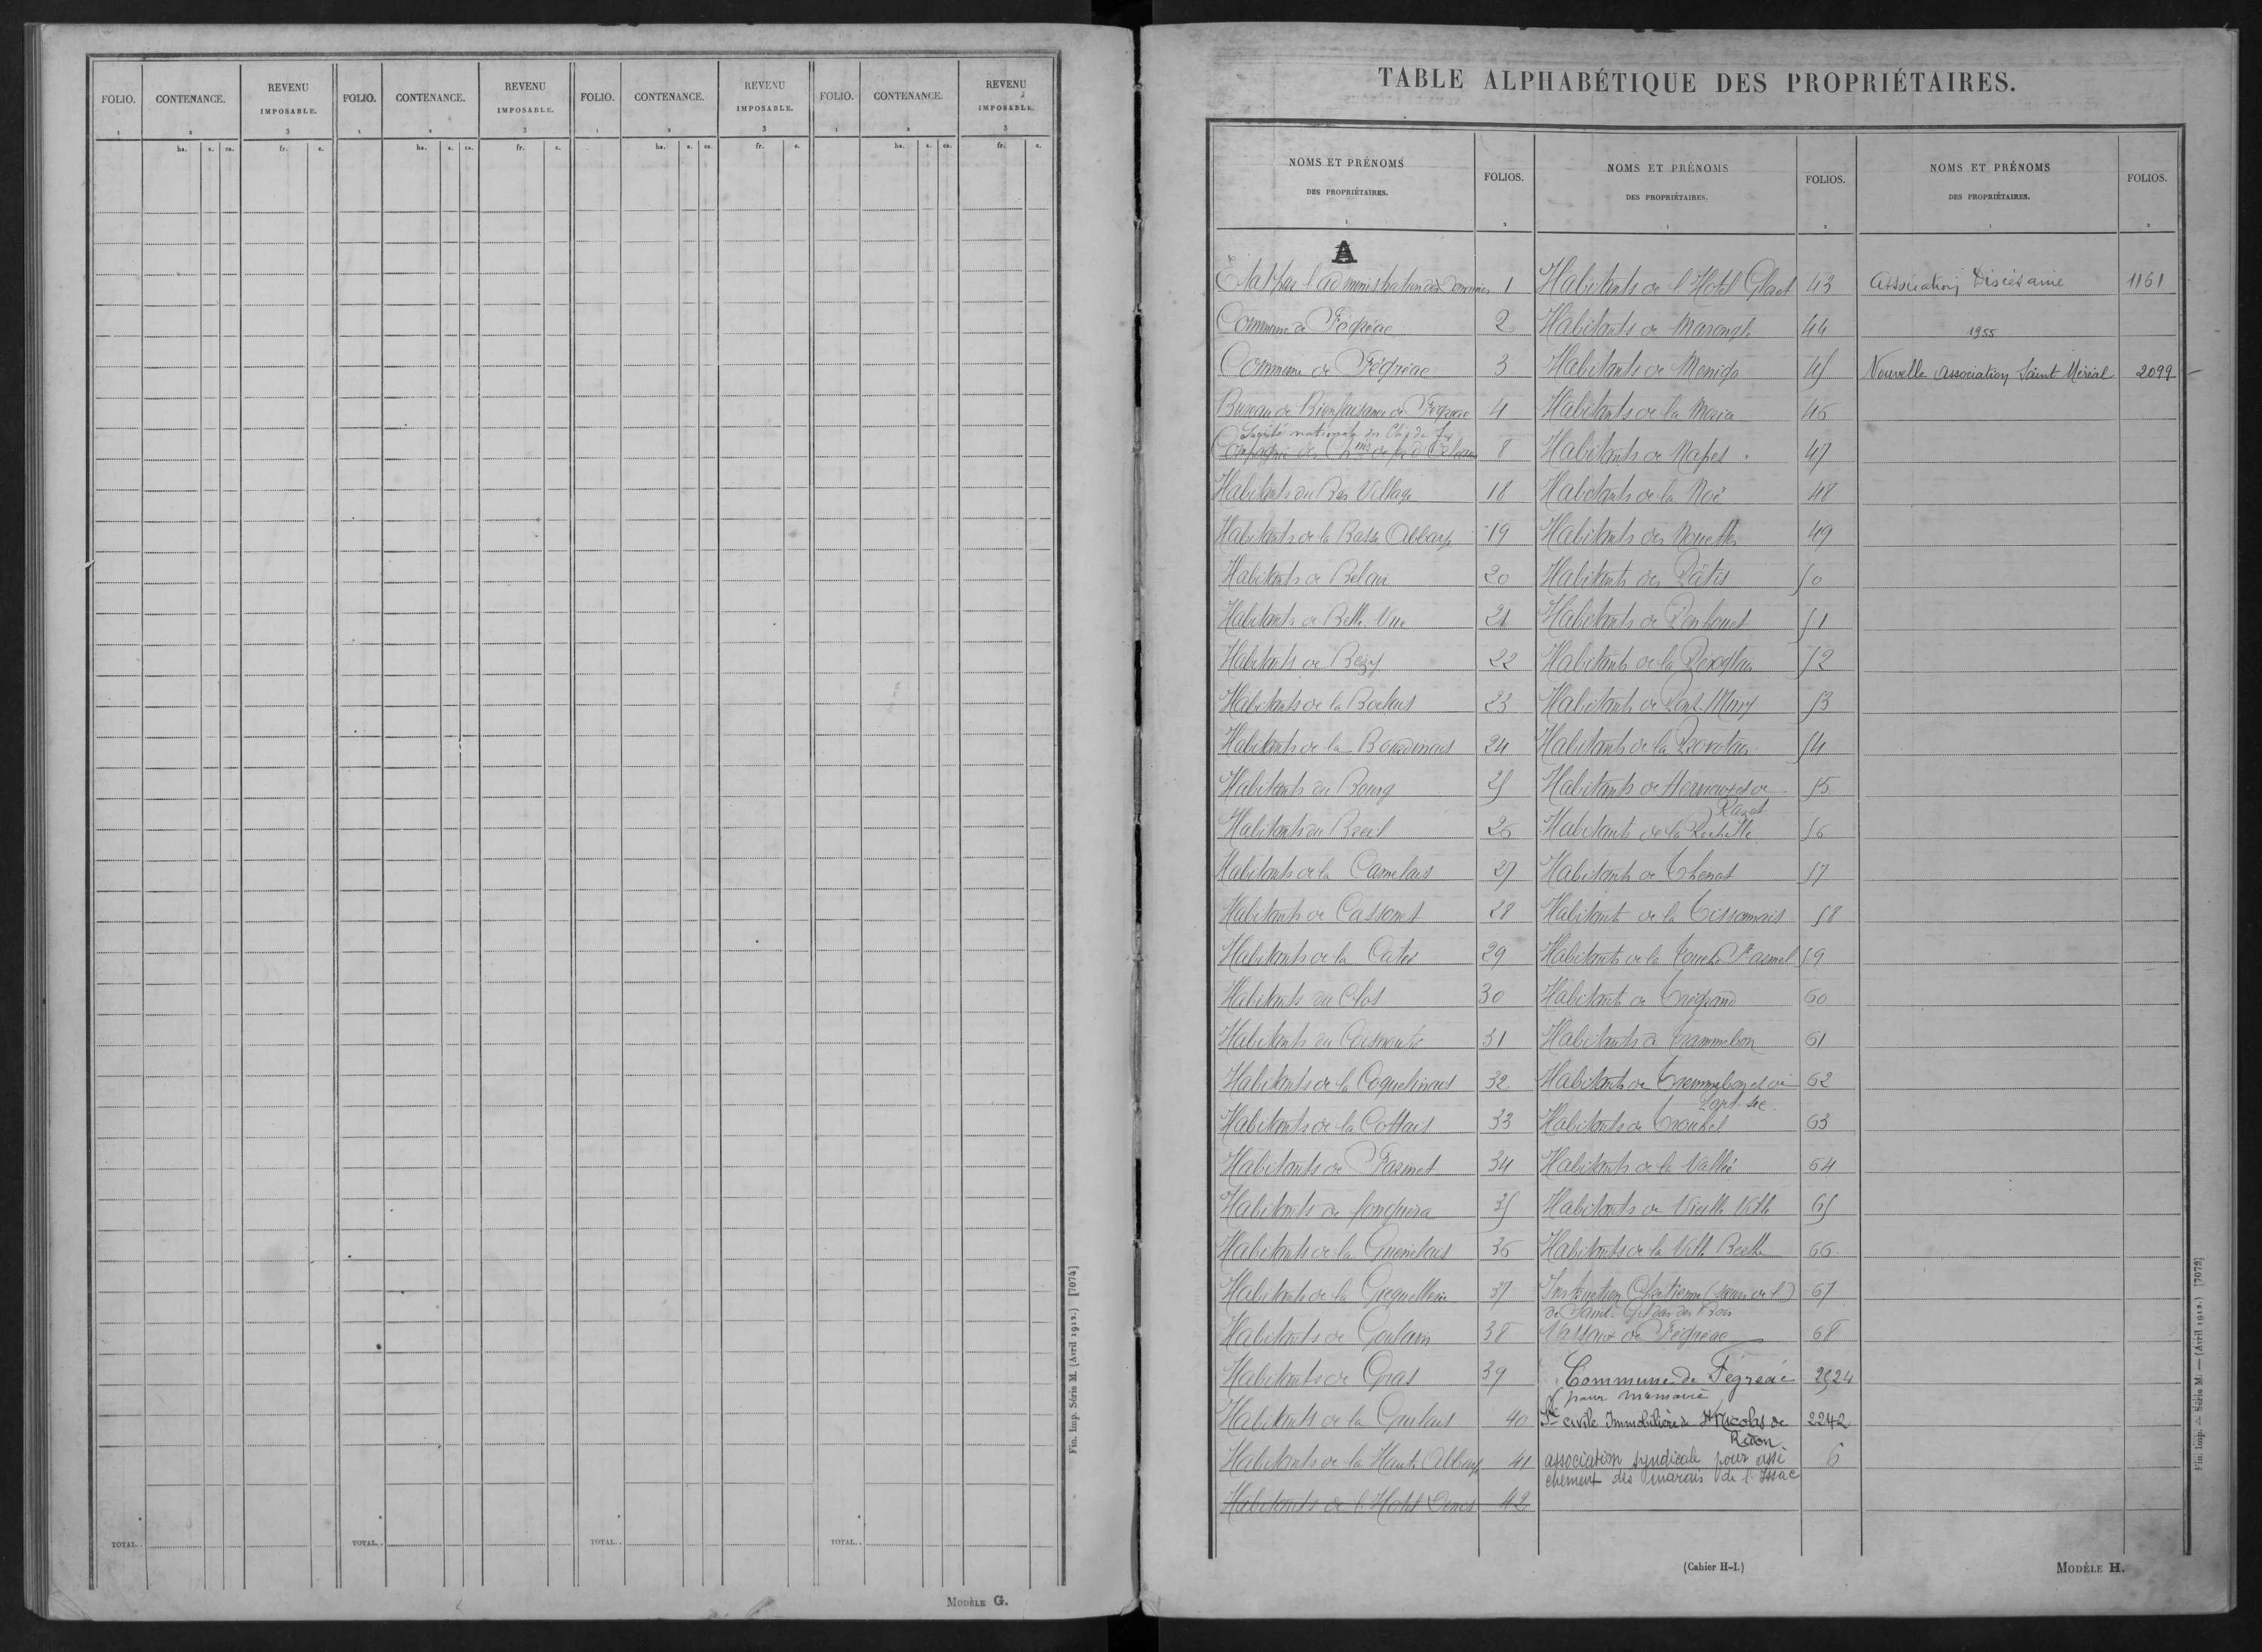 FOLIO. CONTENANCE. REVENU IMPOSABLE. FOLIO. CONTENANCE. REVENU IMPOSABLE. FOLIO. CONTENANCE. REVENU IMPOSABLE. FOLIO. CONTENANCE. REVENU IMPOSABLE.
1 2 3 1 2 3 1 2 3 1 2 3
ha. a. ca. fr. c. ha. a. ca. fr. c. ha. a. ca. fr. c. ha. a. ca. fr. c.
TOTAL. TOTAL. TOTAL. TOTAL.
Fin. Imp. Série M. (Avril 1912.) [7074]
MODÈLE G.
TABLE ALPHABÉTIQUE DES PROPRIÉTAIRES.
NOMS ET PRÉNOMS DES PROPRIÉTAIRES. FOLIOS. NOMS ET PRÉNOMS DES PROPRIÉTAIRES. FOLIOS. NOMS ET PRÉNOMS DES PROPRIÉTAIRES. FOLIOS.
1 2 1 2 1 2
A
Etat par l'administration des Domaines 1
Commune de Fégréac 2
Commune de Fégréac 3
Bureau de Bienfaisance de Fégréac 4
Société nationale des Ch. de fer
Compagnie des Ch.ins de fer d'Orléans 8
Habitants du Bas Village 18
Habitants de la Basse Abbaye 19
Habitants de Belair 20
Habitants de Belle Vue 21
Habitants de Bezy 22
Habitants de la Bochais 23
Habitants de la Bourdinais 24
Habitants du Bourg 25
Habitants du Breil 26
Habitants de la Carnelais 27
Habitants de Cassonet 28
Habitants de la Catée 29
Habitants du Clos 30
Habitants du 31
Habitants de la Coquelinais 32
Habitants de la Cottais 33
Habitants de 34
Habitants de 35
Habitants de la Guenelais 36
Habitants de la 37
Habitants de Goulain 38
Habitants de Gras 39
Habitants de la 40
Habitants de la Haute Abbaye 41
Habitants de l'Hotel Denes 42
Habitants de l'Hotel 43
Habitants de Marongle 44
Habitants de 45
Habitants de la 46
Habitants de Napes 47
Habitants de la Noë 48
Habitants des Nouettes 49
Habitants des Pâtis 50
Habitants de Penhouet 51
Habitants de la 52
Habitants de Pont Miny 53
Habitants de la Provotais 54
Habitants de et de Razet 55
Habitants de la 56
Habitants de Thenot 57
Habitants de la Tissonnais 58
Habitants de la Touche 59
Habitants de 60
Habitants de 61
Habitants de et de 62
Habitants de Trouhel 63
Habitants de la Vallée 64
Habitants de Vieille Ville 65
Habitants de la Ville Bret 66
Instruction Chrétienne (sœurs de l') 67
de Saint-Gildas des Bois
Vassaux de Fégréac 68
Commune de Fégréac 2924
pour mémoire
Sté civile Immobilière de St Nicolas de Redon 2242
association syndicale pour assé 6
chement des marais de l'Issac
Association Diocésaine 1161
1955
Nouvelle Association Saint Mérial 2099
(Cahier H-I.)
MODÈLE H.
Fin. Imp. — Série M. — (Avril 1912.) [7079]